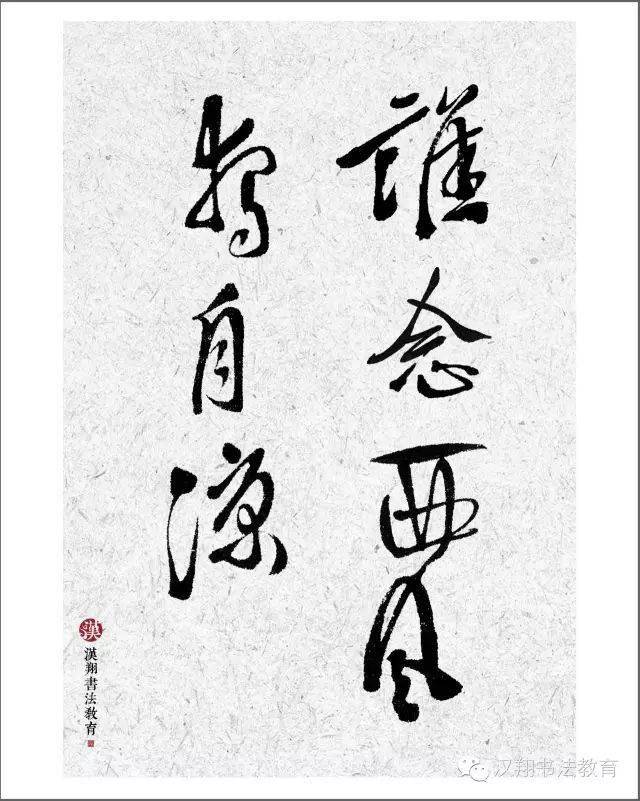 誰念西風
獨自涼
漢
漢翔書法教育
汉翔书法教育